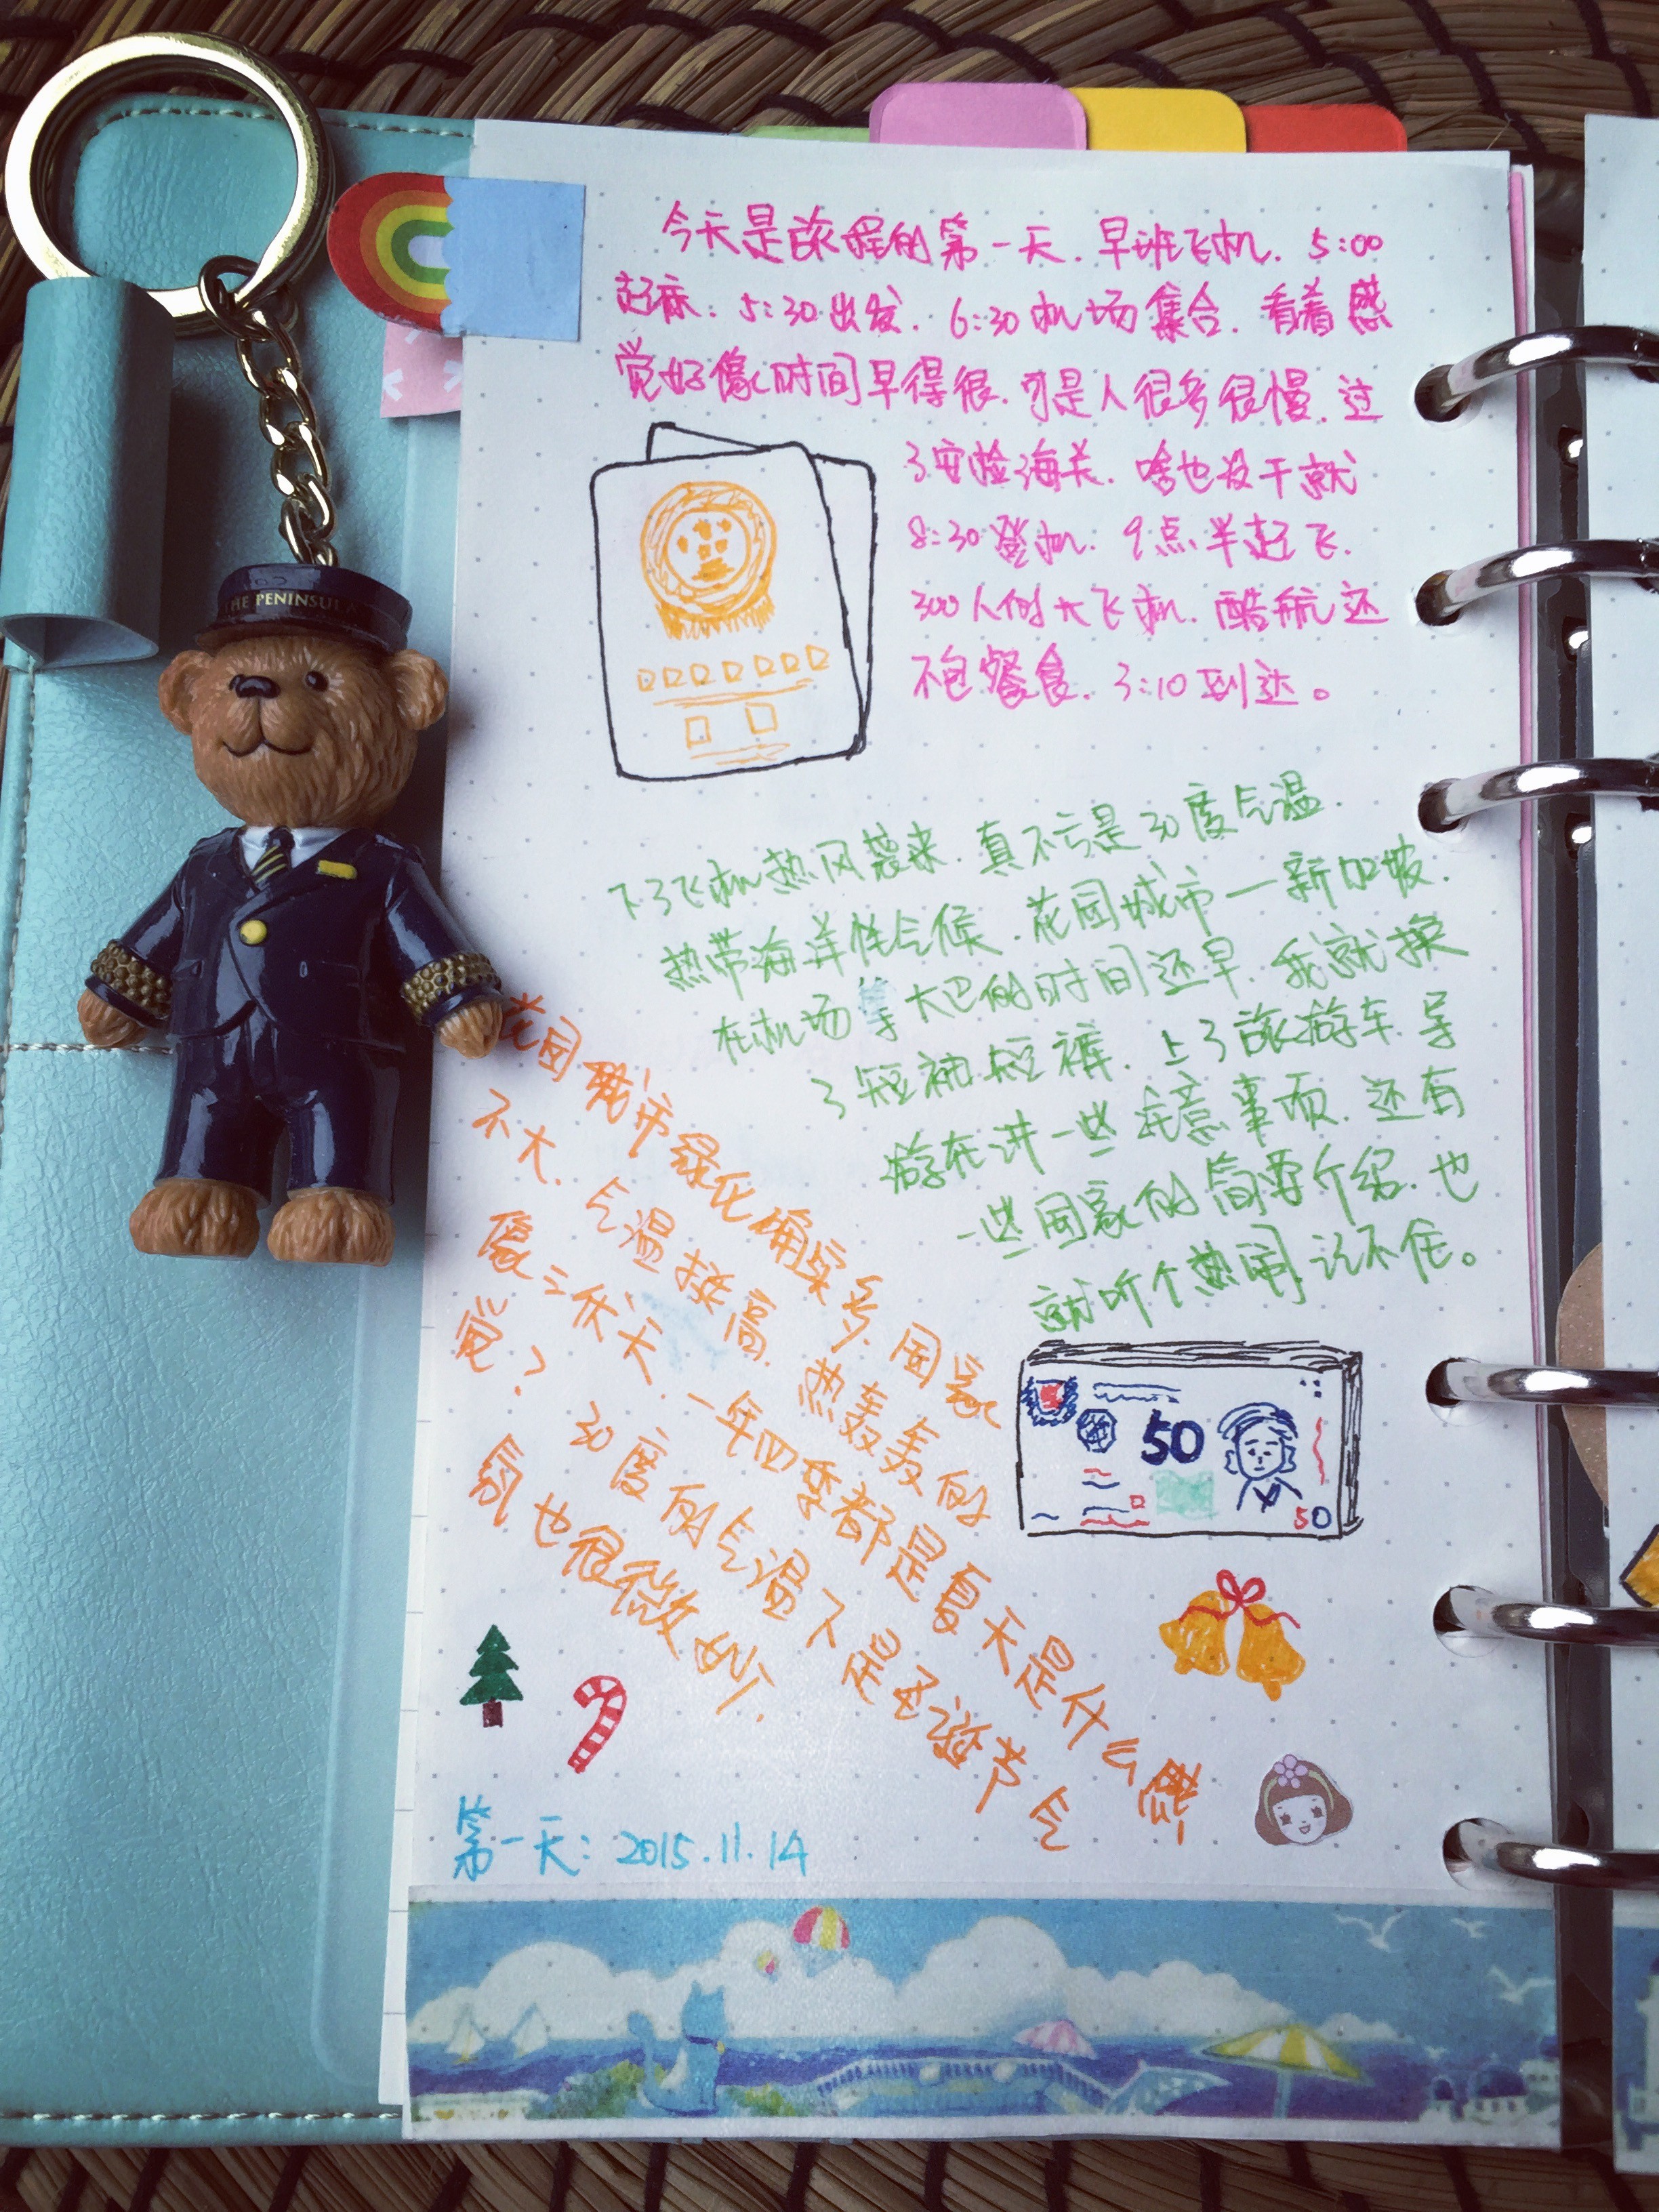 今天是旅程的第一天.早班飞机.5:00
起床.5:30出发.6:30机场集合.看着感
觉好像时间早得很.可是人很多很慢.过
了安检海关.啥也没干就
8:30登机.9点半起飞.
300人的大飞机.酷航还
不包餐食.3:10到达。
下了飞机热风袭来.真不亏是30度气温.
热带海洋性气候.花园城市—新加坡.
在机场等大巴的时间还早.我就换
了短袖短裤.上了旅游车.导
游在讲一些注意事项.还有
一些国家的简要介绍.也
就听个热闹记不住。
花园城市绿化确实多.国家
不大.气温挺高.热轰轰的
像三伏天.一年四季都是夏天是什么感
觉?30度的气温下是圣诞节气
氛也很微妙.
50
50
第一天:2015.11.14
THE PENINSULA